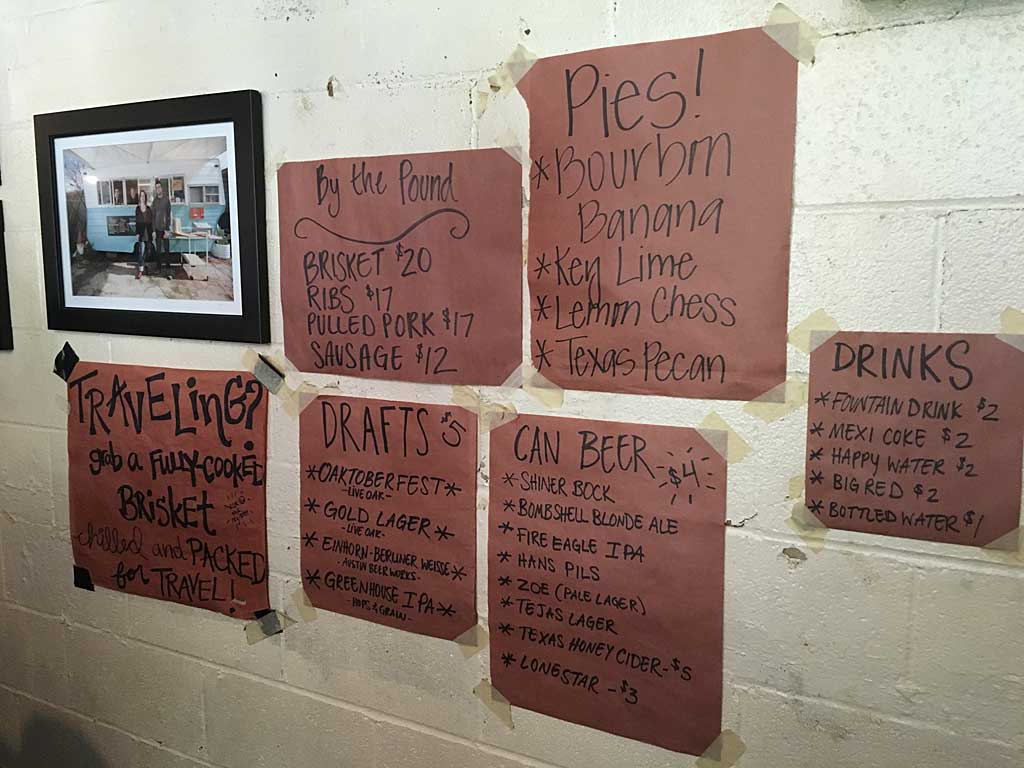 By the Pound
BRISKET $20
RIBS $17
PULLED PORK $17
SAUSAGE $12
Pies!
*Bourbon
Banana
*Key Lime
*Lemon Chess
*Texas Pecan
TRAVELING?
grab a FULLY-COOKED
BRISKET
chilled and PACKED
for TRAVEL!
DRAFTS $5
*OAKTOBERFEST*
-LIVE OAK-
*GOLD LAGER*
-LIVE OAK-
*EINHORN-BERLINER WEISSE*
-AUSTIN BEER WORKS-
*GREENHOUSE IPA-*
-HOPS & GRAIN-
CAN BEER $4
*SHINER BOCK
*BOMBSHELL BLONDE ALE
*FIRE EAGLE IPA
*HANS PILS
*ZOE (PALE LAGER)
*TEJAS LAGER
*TEXAS HONEY CIDER-$5
*LONESTAR -$3
DRINKS
*FOUNTAIN DRINK $2
*MEXI COKE $2
*HAPPY WATER $2
*BIG RED $2
*BOTTLED WATER $1